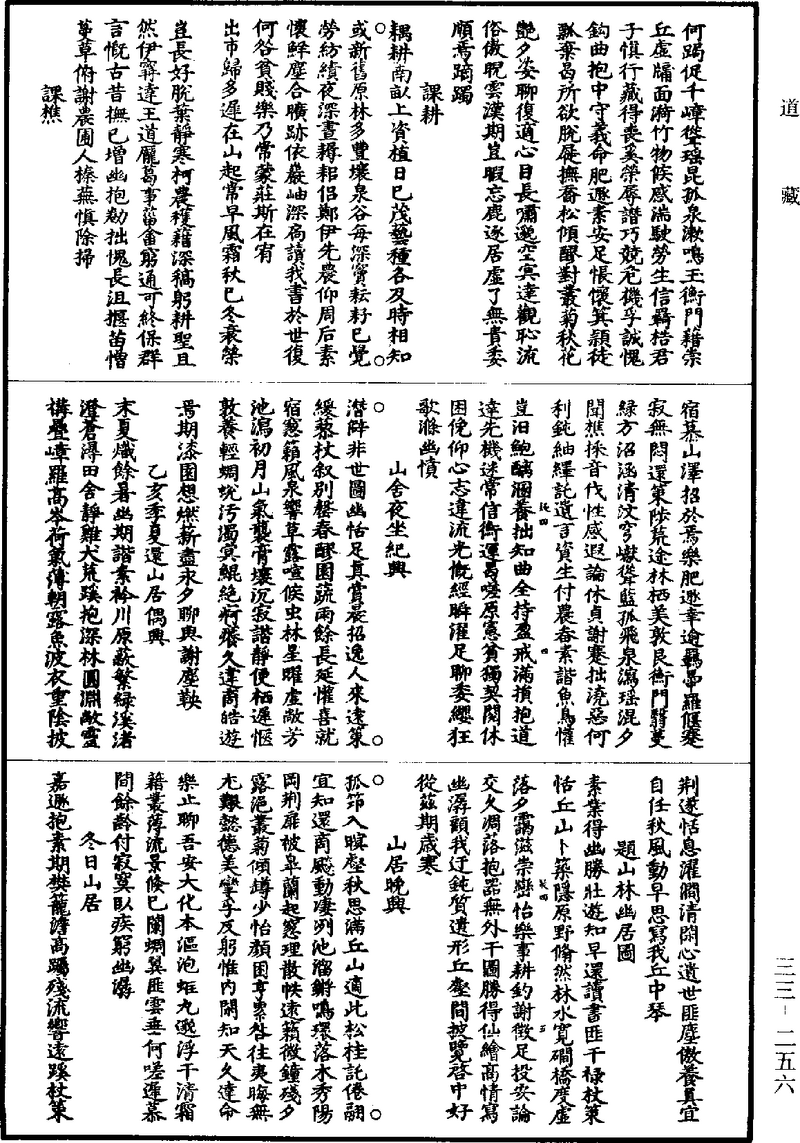 道藏
何蹋促千嶂瑩瑶昆孤泉漱鳴玉衡門藉崇
丘虛牖面漪竹物候感湍駛勞生信羈梏君
子慎行藏得喪奚榮辱譖巧競危機孚誠愧
鈎曲抱中守義命肥遯素安足悵懷箕潁徒
瓢棄曷所欲脫屣撫喬松傾醪對叢菊秋花
艷夕姿聊復適心目長嘯邈空冥達觀恥流
俗傲睨雲漢期豈暇忘鹿逐居虛了無貴委
順焉躊躅
課耕
耦耕南畝上資植日已茂藝種各及時相知
或新舊原林多豐壤泉谷每深竇耘耔已覺
勞紡績夜深晝耨耜侶鄭伊先農仰周后素
懷鮮塵合曠跡依巖岫深扃讀我書於世復
何咎貧賤樂乃常蒙莊斯在宥
出市歸多遲在山起常早風霜秋已冬衰榮
豈長好脫葉靜寒柯農穫藉深稿躬耕聖且
然伊窮達王道龐葛事菑畬窮通可終保群
言慨古昔撫已增幽抱勤拙愧長沮揠苗憎
草俯謝農圃人榛蕪慎除掃
課樵
宿慕山澤招於焉樂肥遯幸逾羈帛羅偃蹇
寂無悶還策陟荒途林栖美敦艮衡門翳蔓
綠方沼涵清汶穹嶽聳藍孤飛泉瀉瑶混夕
聞樵採音伐性感遐論休貞謝蹇拙澆惡何
利鈍紬繹託遺言資生付農畚素諧魚鳥懽
豈汨鮑醨溷養拙知曲全持盈戒滿損抱道
達先機迷常信衡運曷嗟原憲貧獨契閔休
困俛仰心志違流光慨經瞬濯足聊委纓狂
歌滌幽憤
山舍夜坐紀興
潛辟非世圖幽恬足真賞晨招逸人來遠策
緩藜杖叙別罄春醪園蔬雨餘長延懽喜就
宿窓籟風泉響草露喧候虫林星曜虛敞芳
池瀉初月山氣襲膏壤沉寂諧靜便栖遲愜
敦養輕蜩蛻汚濁冥鯤絕痾癢久違商皓遊
焉期漆園想燃薪盡永夕聊與謝塵鞅
乙亥季夏還山居偶興
末夏熾餘暑幽期諧素衿川原蔽繁綠溪渚
澄蒼潯田舍靜雞犬荒蹊抱深林圓淵敞靈
構疊嶂羅高岑荷氣薄朝露魚波衣重陰披
荆遂恬息濯澗清閟心遺世匪塵傲養真宜
自任秋風動早思寫我丘中琴
題山林幽居圖
素業得幽勝壯遊知早還讀書匪干禄杖策
恬丘山卜築隱原野翛然林水寬磵橋度虛
落夕靄滋崇巒怡樂事耕釣謝徵足投安論
交久凋落抱器無外干圖勝得仙繪高情寫
幽潺顧我迂鈍質遺形丘壑間披覽啓中好
從茲期歲寒
山居晚興
孤筇入暝壑秋思滿丘山適此松桂託倦翮
宜知還商飈動凄冽池溜鏘鳴環落木秀陽
岡荆扉被皐蘭起窓理散帙遠籟微鐘殘夕
露浥叢菊傾罇少怡顔困亨票咎往夷晦無
尤艱懿德美孿孚反躬惟内閑知天久達命
樂止聊吾安大化本漚泡蚷九邈浮干清霜
藉叢薄流景候已闌蜩翼匪雲垂何嗟遲慕
間餘齡付寂寞臥疾窮幽潺
冬日山居
嘉遯抱素期樊籠澹高躅殘流響遠蹊杖策
三三-二五六